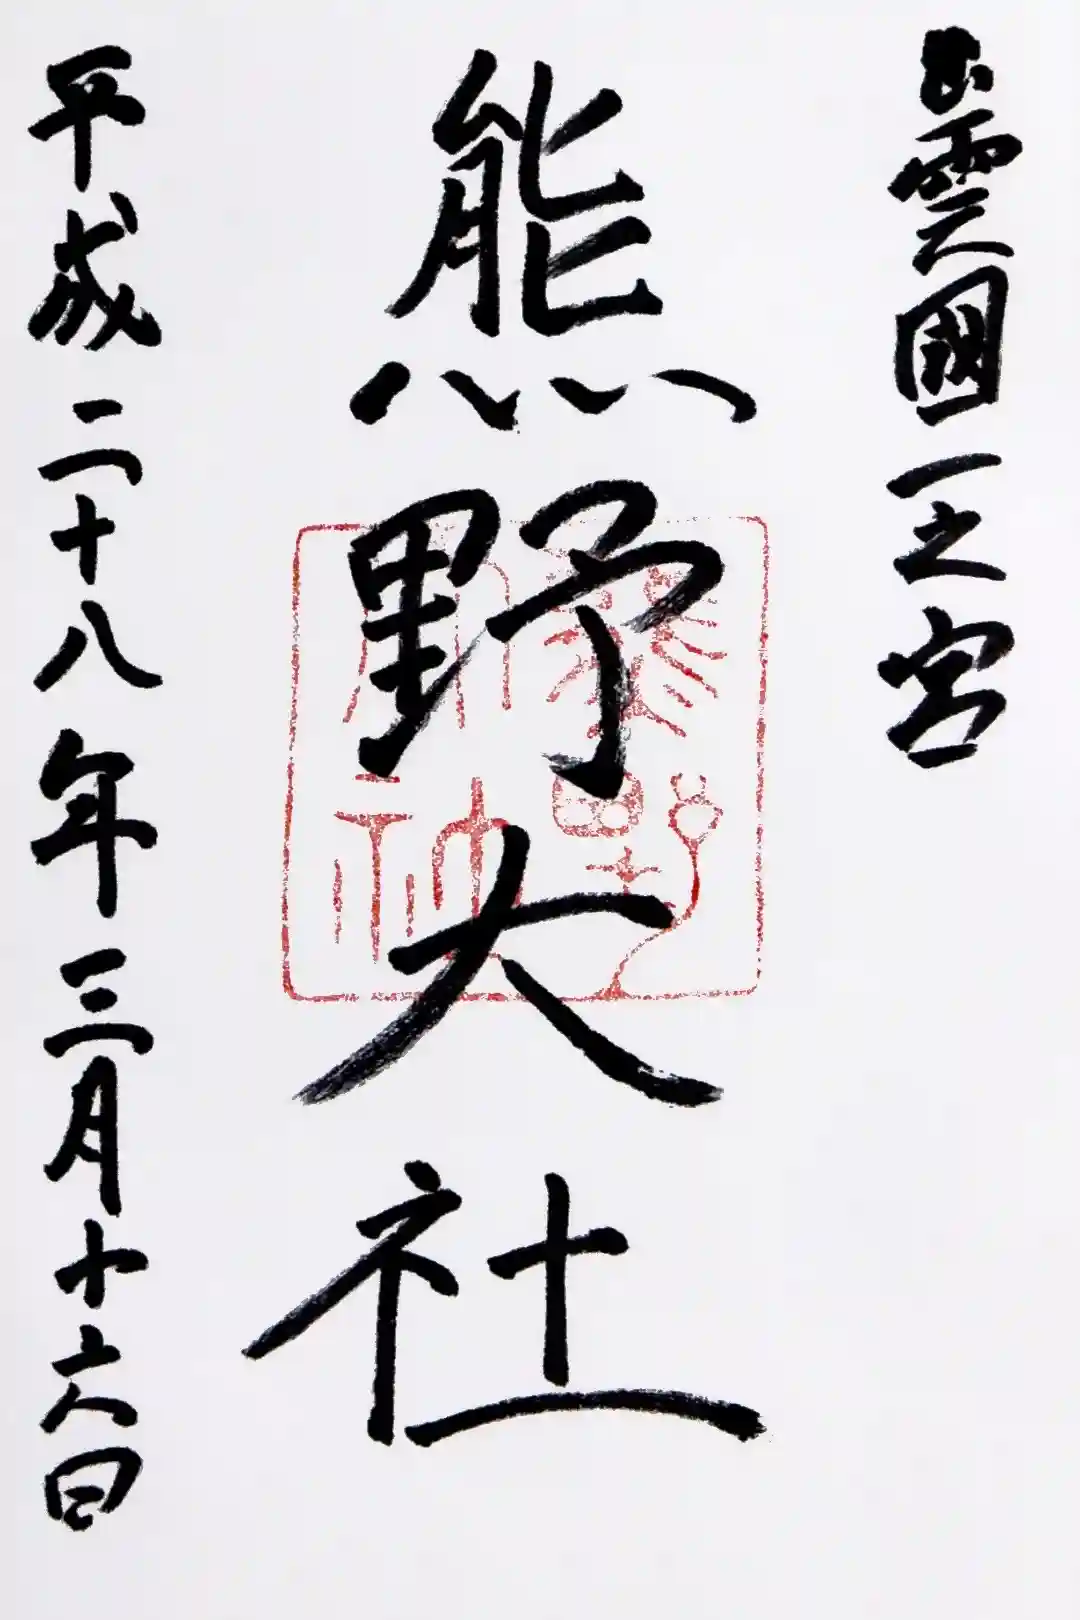 出雲國一之宮
熊野大社
平成二十八年三月十六日
熊野
大社